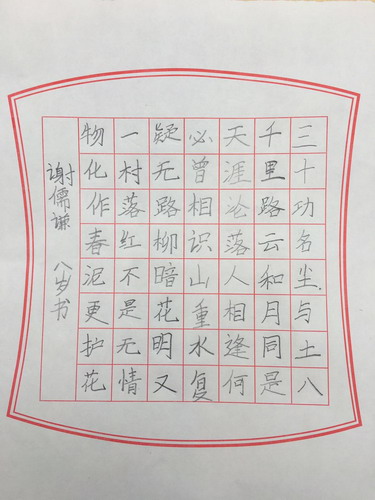 三十功名尘与土八
千里路云和月同是
天涯沦落人相逢何
必曾相识山重水复
疑无路柳暗花明又
一村落红不是无情
物化作春泥更护花
谢儒谦 八岁书